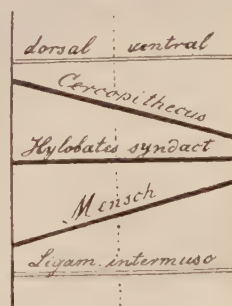 dorsal ventral
Cercopithecus
Hylobates syndact
Mensch
Ligam. intermusc